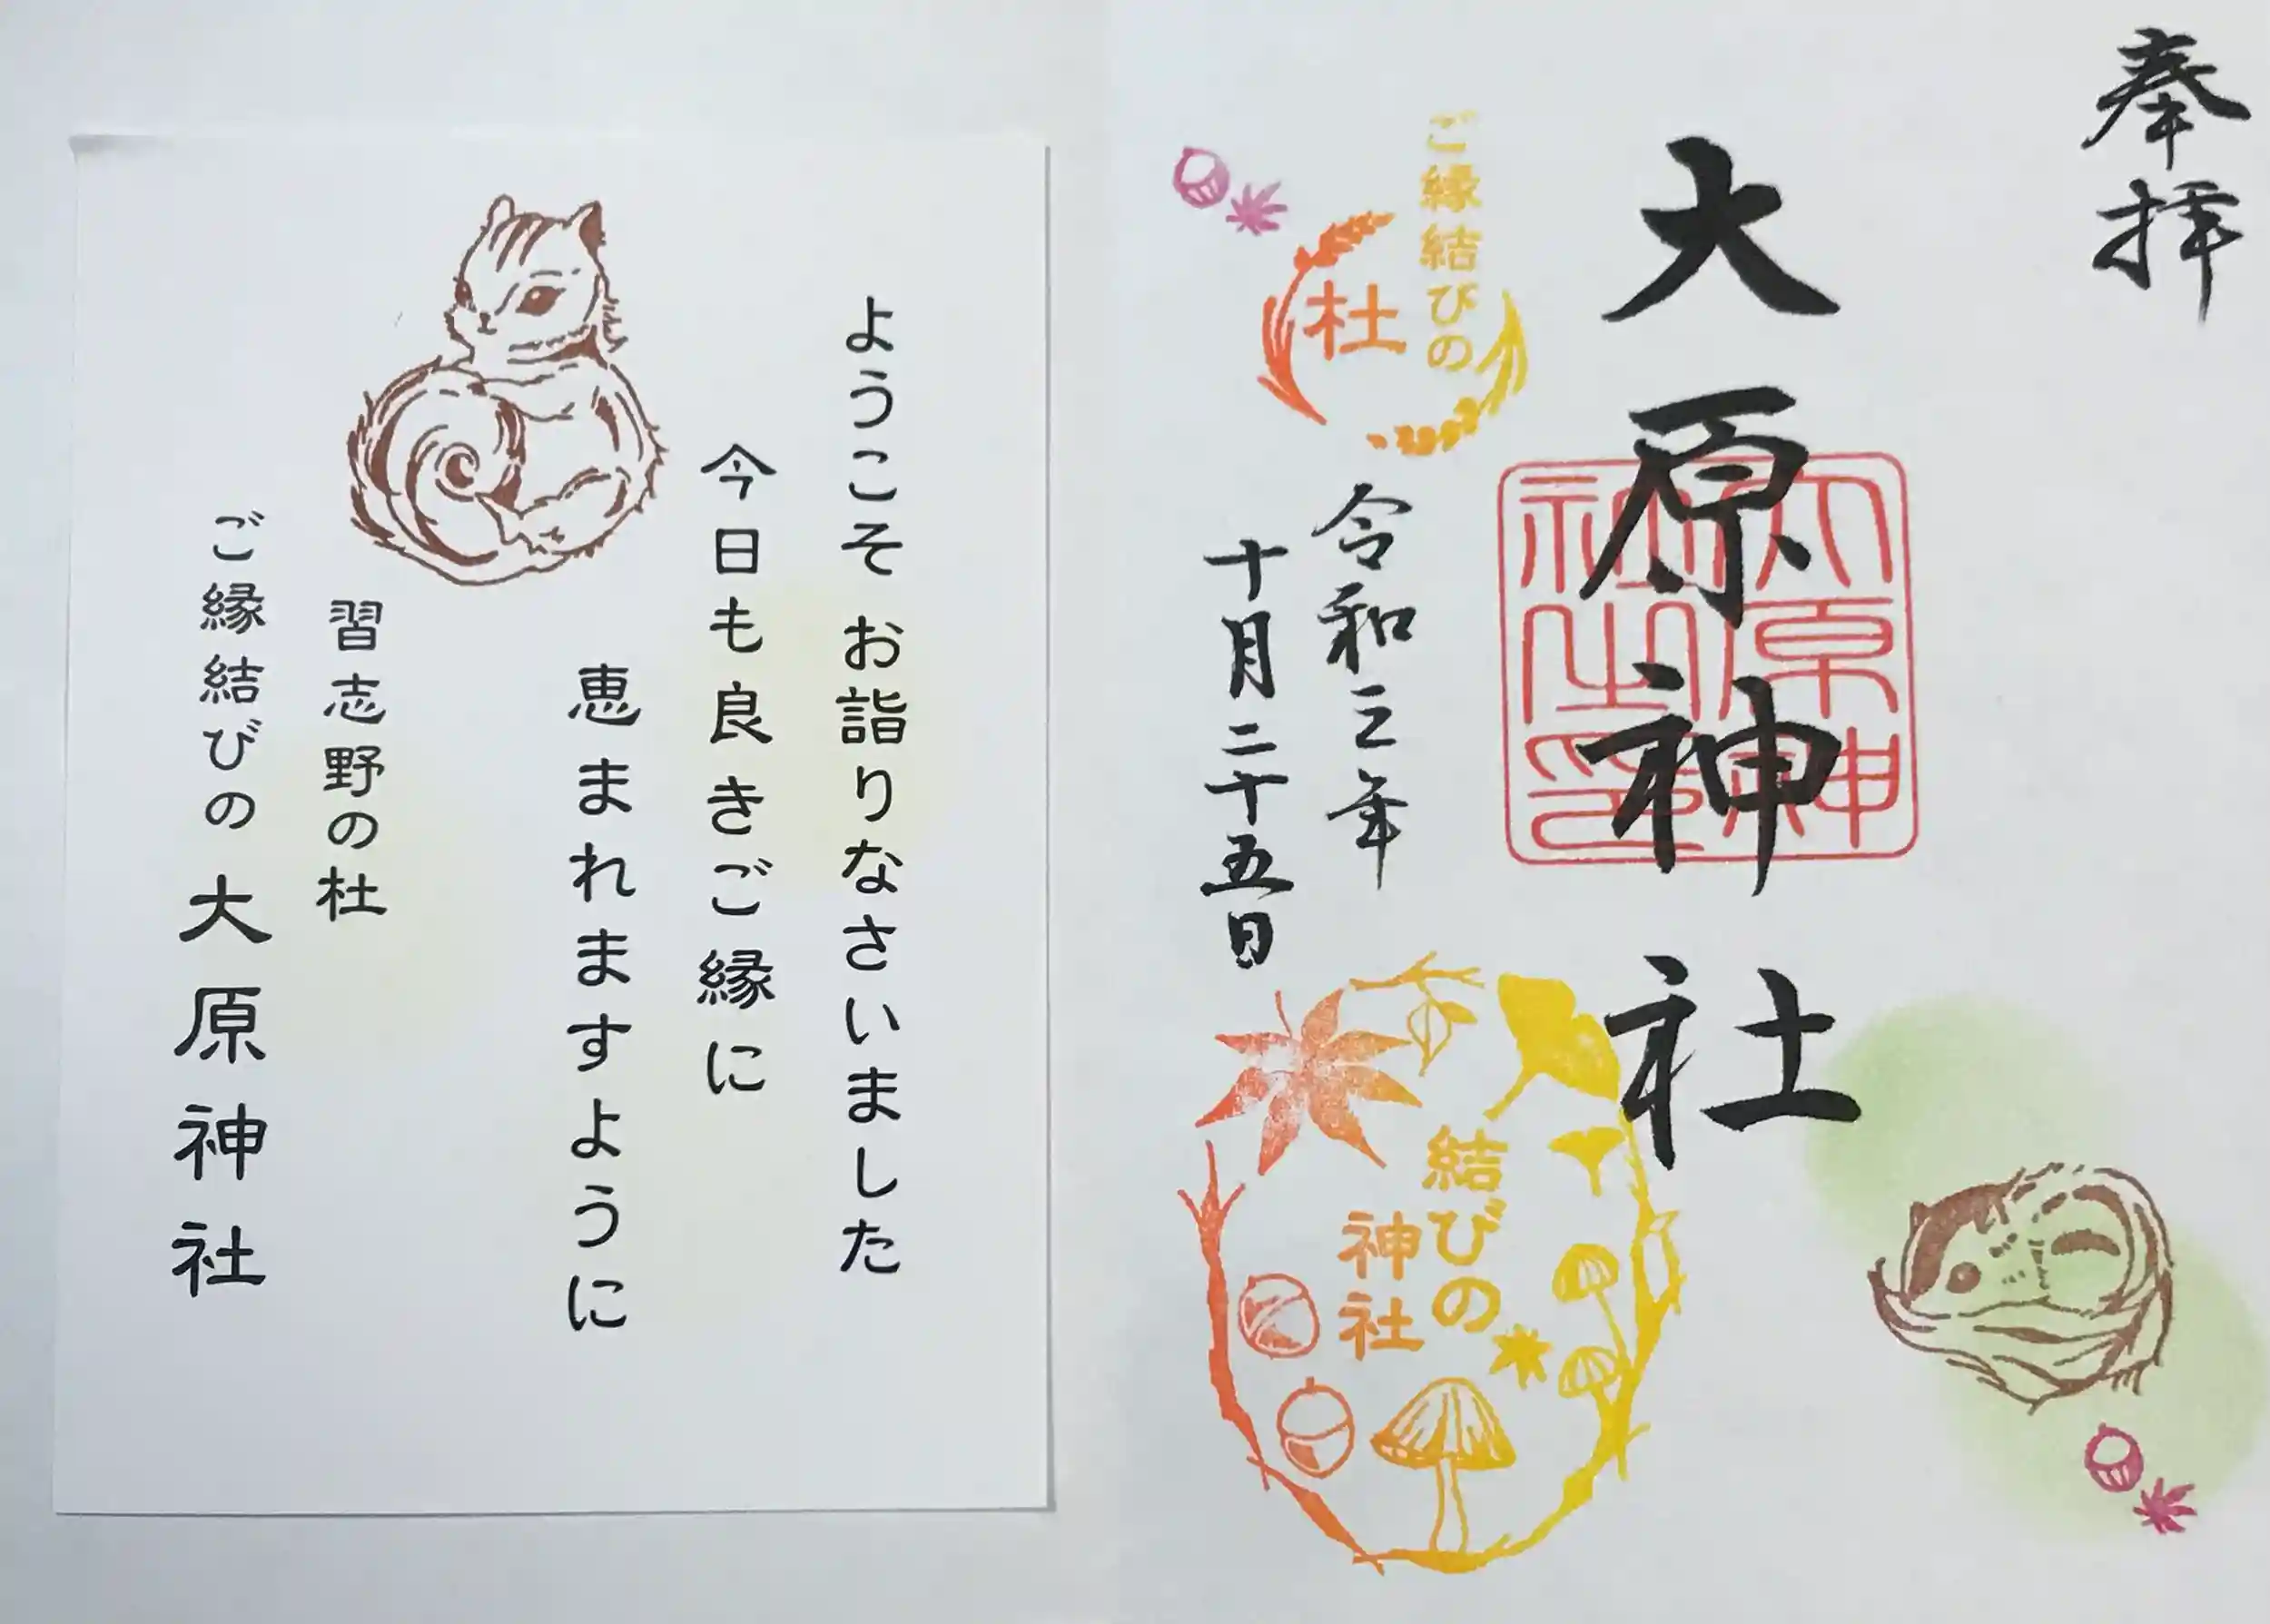 ようこそ お詣りなさいました
今日も良きご縁に
恵まれますように
習志野の杜
ご縁結びの大原神社
奉拝
大原神社
大原神
社之印
ご縁結びの
杜
令和三年
十月二十五日
結びの
神社